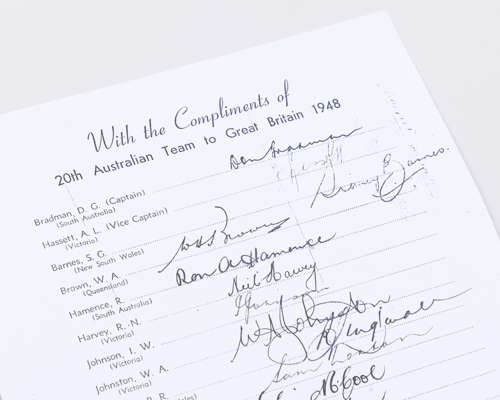 With the Compliments of
20th Australian Team to Great Britain 1948
Bradman, D. G. (Captain) Don Bradman
(South Australia)
Hassett, A. L. (Vice Captain)
(Victoria)
Barnes, S. G. Sidney G Barnes.
(New South Wales)
Brown, W. A. W A Brown
(Queensland)
Hamence, R. Ron A Hamence
(South Australia)
Harvey, R. N. Neil Harvey
(Victoria)
Johnson, I. W.
(Victoria)
Johnston, W. A. W A Johnston
(Victoria)
R.
Sam Loxton
McCool